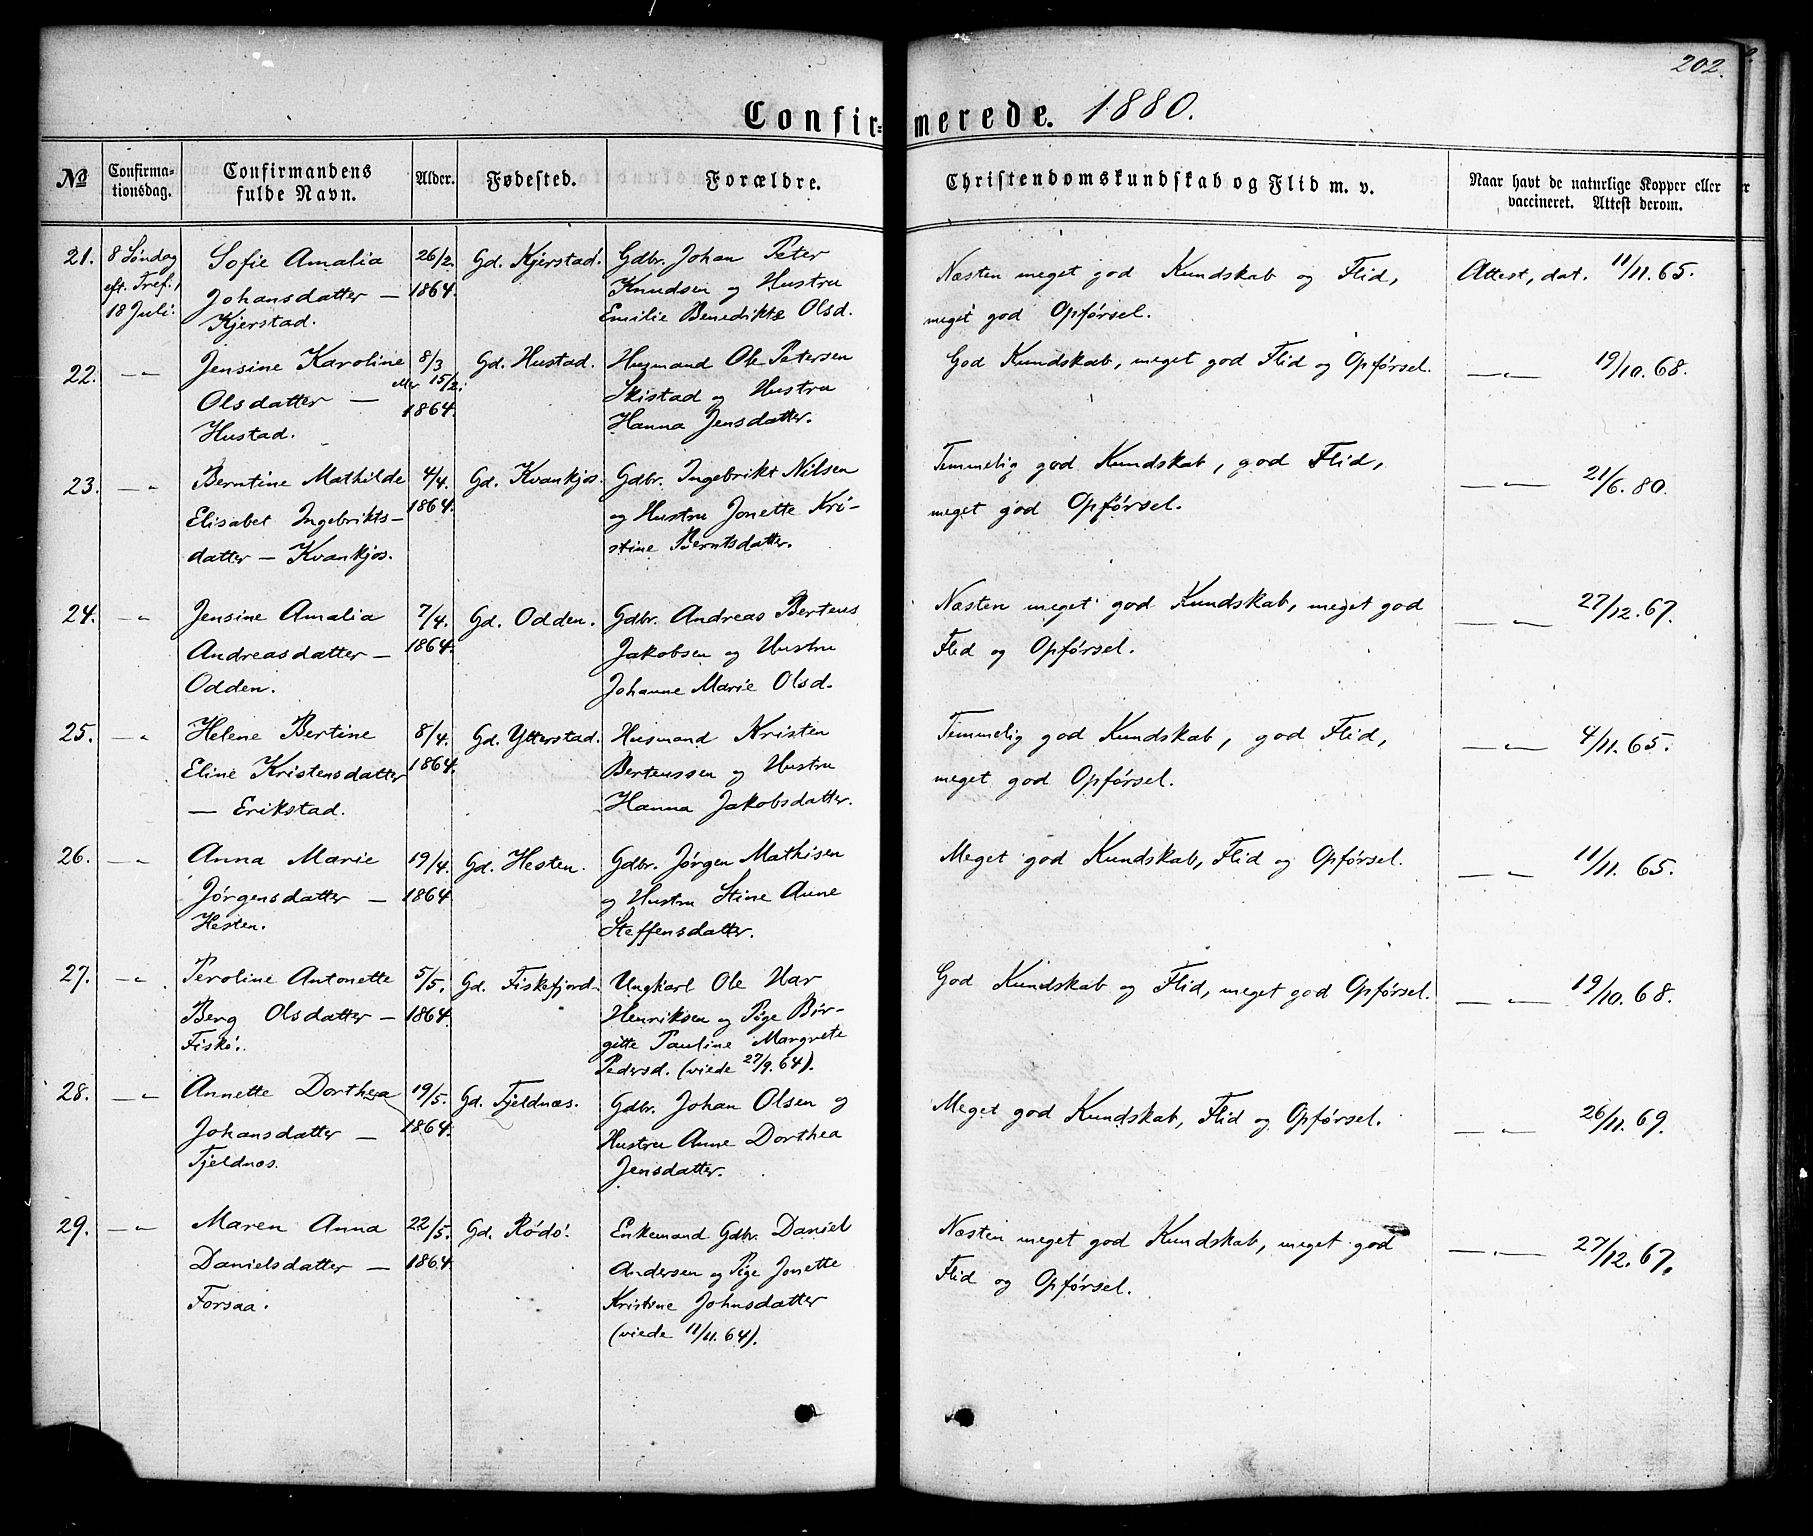 202.
Confirmerede. 1880.
№ Confirmationsdag. Confirmandens fulde Navn. Alder. Fødested. Forældre. Christendomskundskab og Flid m. v. Naar havt de naturlige Kopper eller vaccineret. Attest derom.
21. 8 Søndag eft. Tref., 18 Juli.
Sofie Amalia
Johansdatter —
Kjerstad.
26/2. 1864.
Gd. Kjerstad.
Gdbr. Johan Peter
Knudsen og Hustru
Emilie Benedikte Olsd.
Næsten meget god Kundskab og Flid,
meget god Opførsel.
Attest, dat. 11/11. 65.
22. — „
Jensine Karoline
Olsdatter —
Hustad.
8/3 eller 15/2. 1864.
Gd. Hustad.
Husmand Ole Petersen
Skistad og Hustru
Hanna Jensdatter.
God Kundskab, meget god Flid og Opførsel.
— „ — 19/10. 68.
23. — „
Berntine Mathilde
Elisabet Ingebrikts-
datter — Kvankjos.
4/4. 1864.
Gd. Kvankjos.
Gdbr. Ingebrikt Nilsen
og Hustru Jonette Kri-
stine Berntsdatter.
Temmelig god Kundskab, god Flid,
meget god Opførsel.
— „ — 21/6. 80.
24. — „
Jensine Amalia
Andreasdatter —
Odden.
7/4. 1864.
Gd. Odden.
Gdbr. Andreas Berteus
Jakobsen og Hustru
Johanne Marie Olsd.
Næsten meget god Kundskab, meget god
Flid og Opførsel.
— „ — 27/12. 67.
25. — „
Helene Bertine
Eline Kristensdatter
— Erikstad.
8/4. 1864.
Gd. Ytterstad.
Husmand Kristen
Berteussen og Hustru
Hanna Jakobsdatter.
Temmelig god Kundskab, god Flid,
meget god Opførsel.
— „ — 4/11. 65.
26. — „
Anna Marie
Jørgensdatter —
Hesten.
19/4. 1864
Gd. Hesten.
Gdbr. Jørgen Mathisen
og Hustru Stine Anne
Steffensdatter.
Meget god Kundskab, Flid og Opførsel.
— „ — 11/11. 65.
27. — „
Peroline Antonette
Berg Olsdatter —
Fiskø.
5/5. 1864.
Gd. Fiskefjord.
Ungkarl Ole Har
Henriksen og Pige Bir-
gitte Pauline Margrete
Pedersd. (viede 27/9. 64).
God Kundskab og Flid, meget god Opførsel.
— „ — 19/10. 68.
28. — „
Annette Dorthea
Johansdatter —
Tjeldnæs.
19/5. 1864.
Gd. Tjeldnæs.
Gdbr. Johan Olsen og
Hustru Anne Dorthea
Jensdatter.
Meget god Kundskab, Flid og Opførsel.
— „ — 26/11. 69.
29. — „
Maren Anna
Danielsdatter —
Forsaa.
22/5. 1864
Gd. Rødø.
Enkemand Gdbr. Daniel
Andersen og Pige Jonette
Kristine Johnsdatter
(viede 11/11. 64).
Næsten meget god Kundskab, meget god
Flid og Opførsel.
— „ — 27/12. 67.